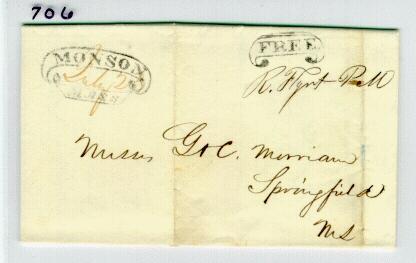 706
MONSON
MASS
FREE
R. Flynt P.M
Messrs G & C. Merriam
Springfield
Ms